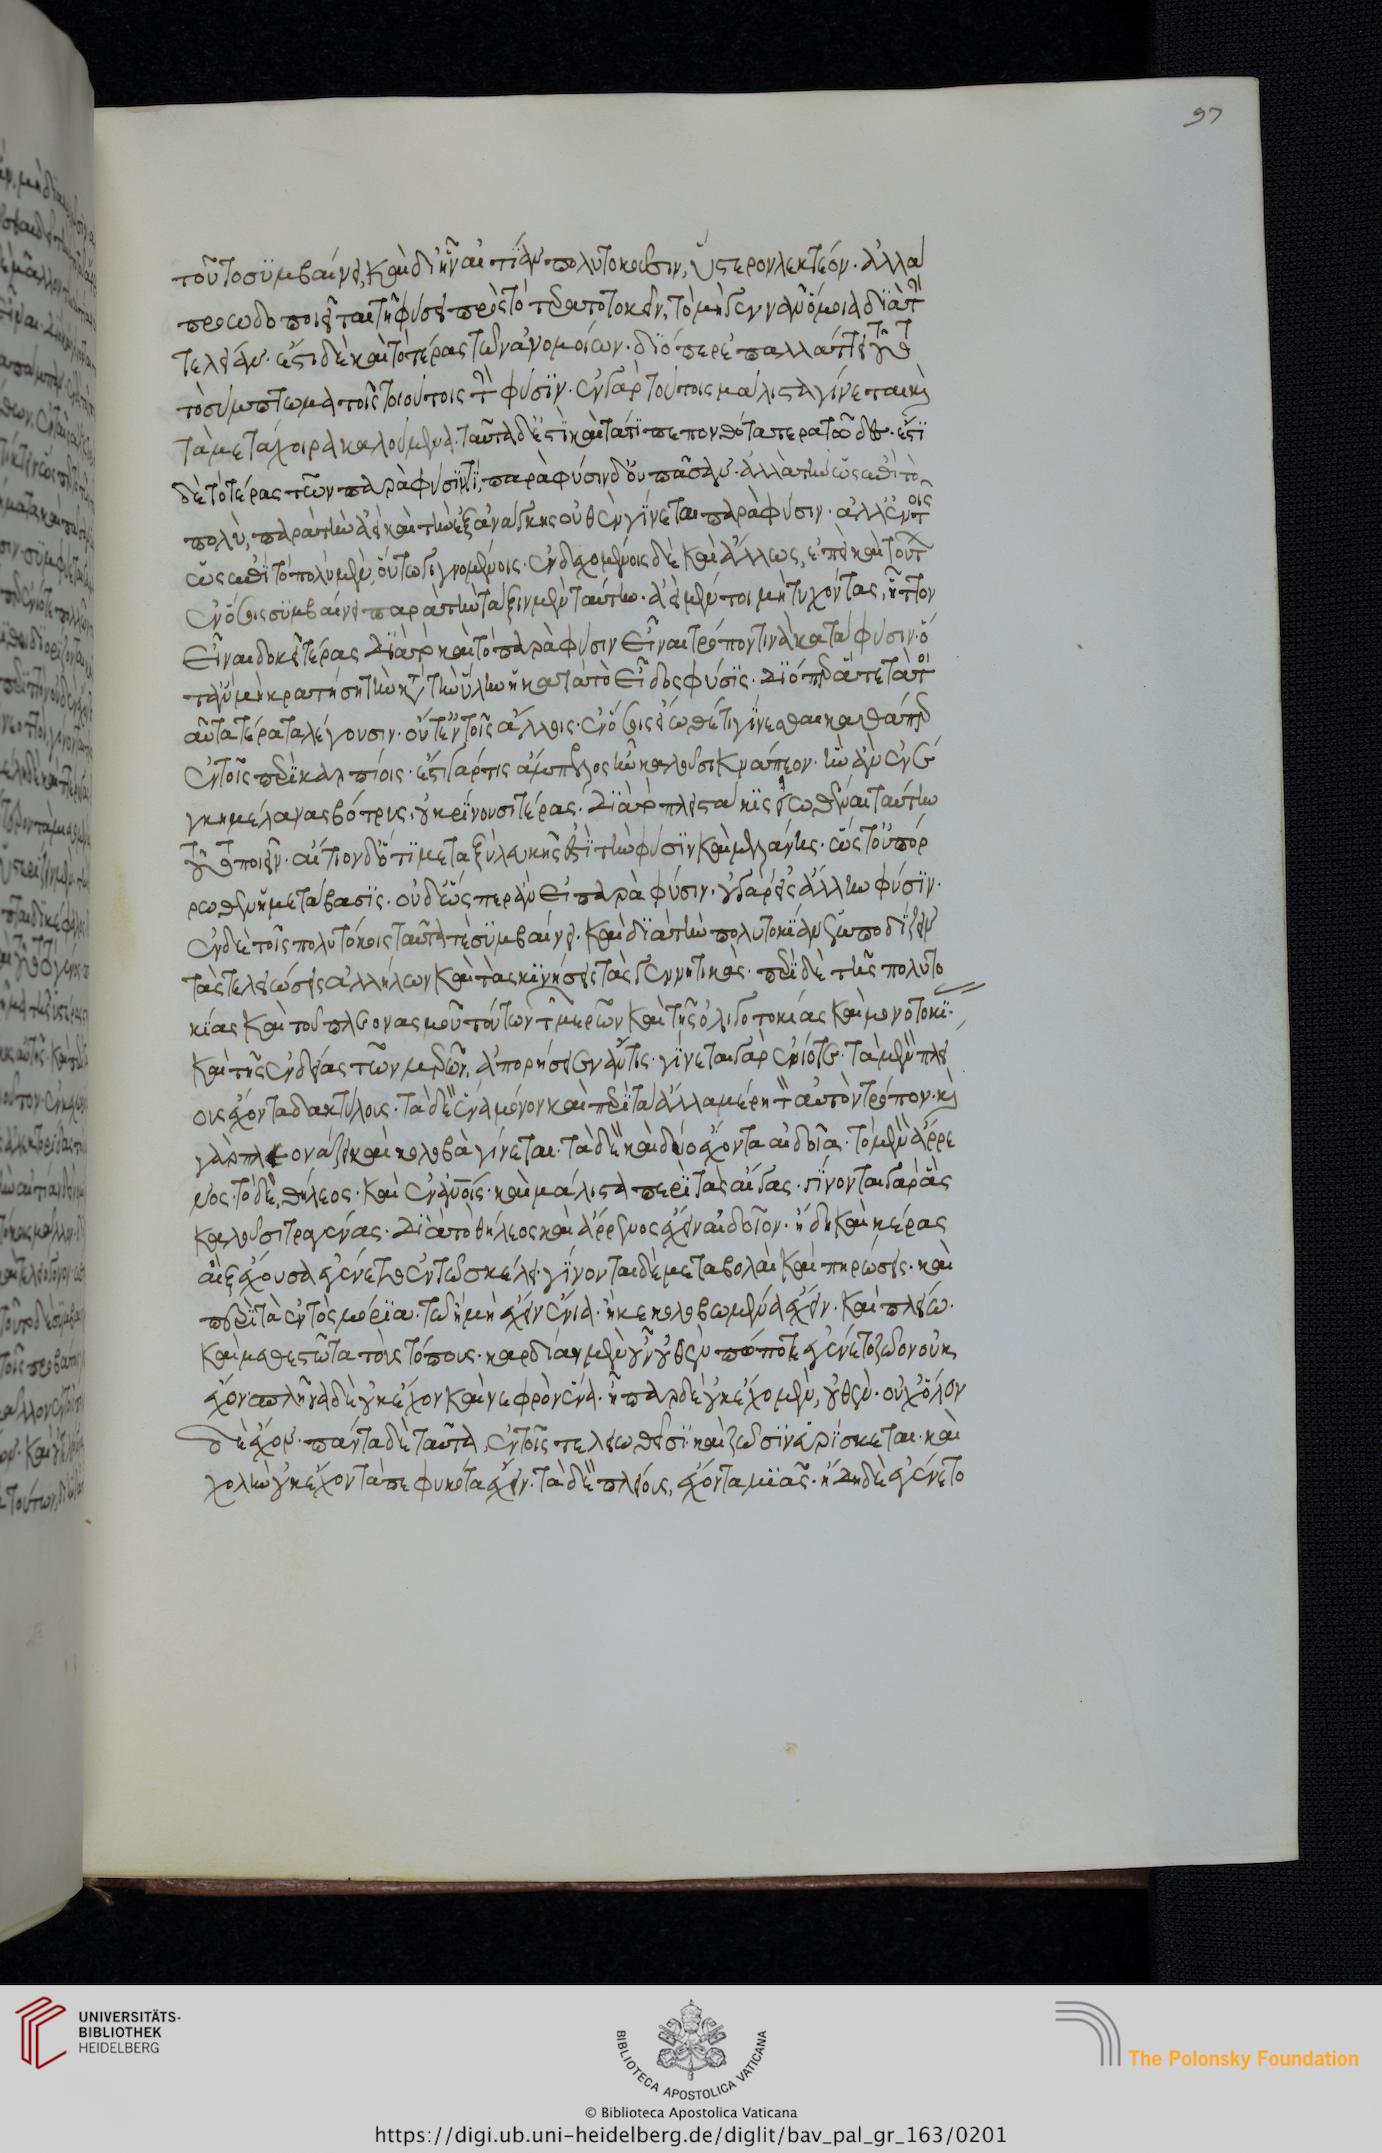 τοῦτο συμβαίνει, καὶ δι' ἣν αἰτίαν πολυτοκοῦσιν, ὕστερον λεκτέον. ἀλλὰ
προωδοποιεῖται τῇ φύσει πρὸς τὸ τερατοτοκεῖν, τὸ μὴ γεννᾶν ὅμοια διὰ τὴν ἀ
τέλειαν. ἔστι δὲ καὶ τὸ τέρας τῶν ἀνομοίων. διόπερ ἐπαλλάττει τοῦτο
τὸ σύμπτωμα τοῖς τοιούτοις τὴν φύσιν. ἐν γὰρ τούτοις μάλιστα γίνεται καὶ
τὰ μετάχοιρα καλούμενα. ταῦτα δέ ἐστι κατά τι πεπονθότα τερατῶδες. ἔστι
δὲ τὸ τέρας τῶν παρὰ φύσιν τι, παρὰ φύσιν δ' οὐ πᾶσαν. ἀλλὰ τὴν ὡς ἐπὶ τὸ
πολύ, παρὰ τὴν ἀεὶ καὶ τὴν ἐξ ἀνάγκης οὐθὲν γίνεται παρὰ φύσιν. ἀλλ' ἐν τοῖς
ὡς ἐπὶ τὸ πολὺ μὲν, οὕτω γιγνομένοις. ἐνδεχομένοις δὲ καὶ ἄλλως, ἐπεὶ καὶ τούτων
ἐν ὅσοις συμβαίνει παρὰ τὴν τάξιν μὲν ταύτην. ἀεὶ μέντοι μὴ τυχόντως, ἧττον
εἶναι δοκεῖ τέρας διὰ τὸ καὶ τὸ παρὰ φύσιν εἶναι τρόπον τινὰ κατὰ φύσιν. ὅ
ταν μὴ κρατήσῃ τὴν κατὰ τὴν ὕλην ἡ κατὰ τὸ εἶδος φύσις. διόπερ οὔτε τὰ τοι
αῦτα τέρατα λέγουσιν. οὔτ' ἐν τοῖς ἄλλοις. ἐν ὅσοις εἴωθέ τι γίνεσθαι καθάπερ
ἐν τοῖς περικαρπίοις. ἔστι γάρ τις ἄμπελος ἣν καλοῦσι κνάπεον. ἣν ἂν ἐνέ
γκῃ μέλανας βότρυς. οὐ κρίνουσι τέρας. διὰ τὸ πλειστάκις εἰωθέναι ταύτην
τοῦτο ποιεῖν. αἴτιον δ' ὅτι μεταξὺ λευκῆς ἐστὶ τὴν φύσιν καὶ μελαίνης. ὥστ' οὐ πόρ
ρωθεν ἡ μετάβασις. οὐδ' ὥσπερ ἂν εἰ παρὰ φύσιν. οὐ γὰρ εἰς ἄλλην φύσιν.
ἐν δὲ τοῖς πολυτόκοις ταῦτά τε συμβαίνει. καὶ διὰ τὴν πολυτοκίαν ἐμποδίζειν
τὰς τελειώσεις ἀλλήλων καὶ τὰς κινήσεις τὰς γεννητικάς. περὶ δὲ τῆς πολυτο
κίας καὶ τοῦ πλεονασμοῦ τούτων τῶν μερῶν καὶ τῆς ὀλιγοτοκίας καὶ μονοτοκί.
καὶ τῆς ἐνδείας τῶν μερῶν, ἀπορήσειεν ἄν τις. γίνεται γὰρ ἐνίοτε. τὰ μὲν πλεί
ους ἔχοντα δακτύλους. τὰ δὲ ἕνα μόνον καὶ περὶ τἆλλα μέρη τὸν αὐτὸν τρόπον. καὶ
γὰρ πλεονάζει καὶ κολοβὰ γίνεται. τὰ δὲ καὶ δύο ἔχοντα αἰδοῖα. τὸ μὲν ἄρρε
νος. τὸ δὲ, θήλεος. καὶ ἐν ἀνοις. καὶ μάλιστα περὶ τὰς αἶγας. γίνονται γὰρ ἃς
καλοῦσι τραγαίνας. διὰ τὸ θήλεος καὶ ἄρρενος ἔχειν αἰδοῖον. ἤδη καὶ κέρας
αἲξ ἔχουσα ἐγένετο ἐν τῷ σκέλει. γίνονται δὲ μεταβολαὶ καὶ πηρώσεις. καὶ
περὶ τὰ ἐντὸς μόρια. τῷ ἢ μὴ ἔχειν ἔνια. ἢ κεκολοβωμένα ἔχειν. καὶ πλείω.
καὶ μεθεστῶτα τοὺς τόπους. καρδίαν μὲν οὖν οὐθὲν πώποτε ἐγένετο ζῷον οὐκ
ἔχον σπλῆνα δὲ οὐκ ἔχον καὶ νεφρὸν ἕνα. ἧπαρ δὲ οὐκ ἔχον μὲν, οὐθέν. οὐχ ὅλον
δὲ ἔχον. πάντα δὲ ταῦτα, ἐν τοῖς τελεωθεῖσι. καὶ ζῶσιν εὑρίσκεται. καὶ
χολὴν οὐκ ἔχοντα πεφυκότα ἔχειν. τὰ δὲ πλείους, ἔχοντα μιᾶς. ἤδη δὲ ἐγένετο
97
UNIVERSITÄTS-
BIBLIOTHEK
HEIDELBERG
BIBLIOTECA APOSTOLICA VATICANA
The Polonsky Foundation
© Biblioteca Apostolica Vaticana
https://digi.ub.uni-heidelberg.de/diglit/bav_pal_gr_163/0201